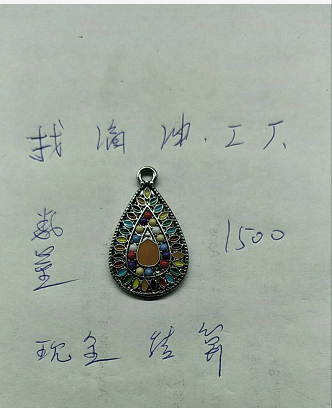 找滴油.工厂
数量 1500
现金结算